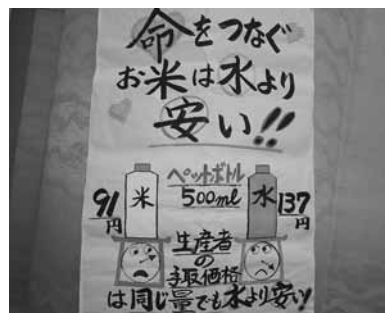 命をつなぐ
お米は水より
安い!!
ペットボトル
500ml
91円
米
水
137円
生産者
の
手取価格
は同じ量でも水より安い!